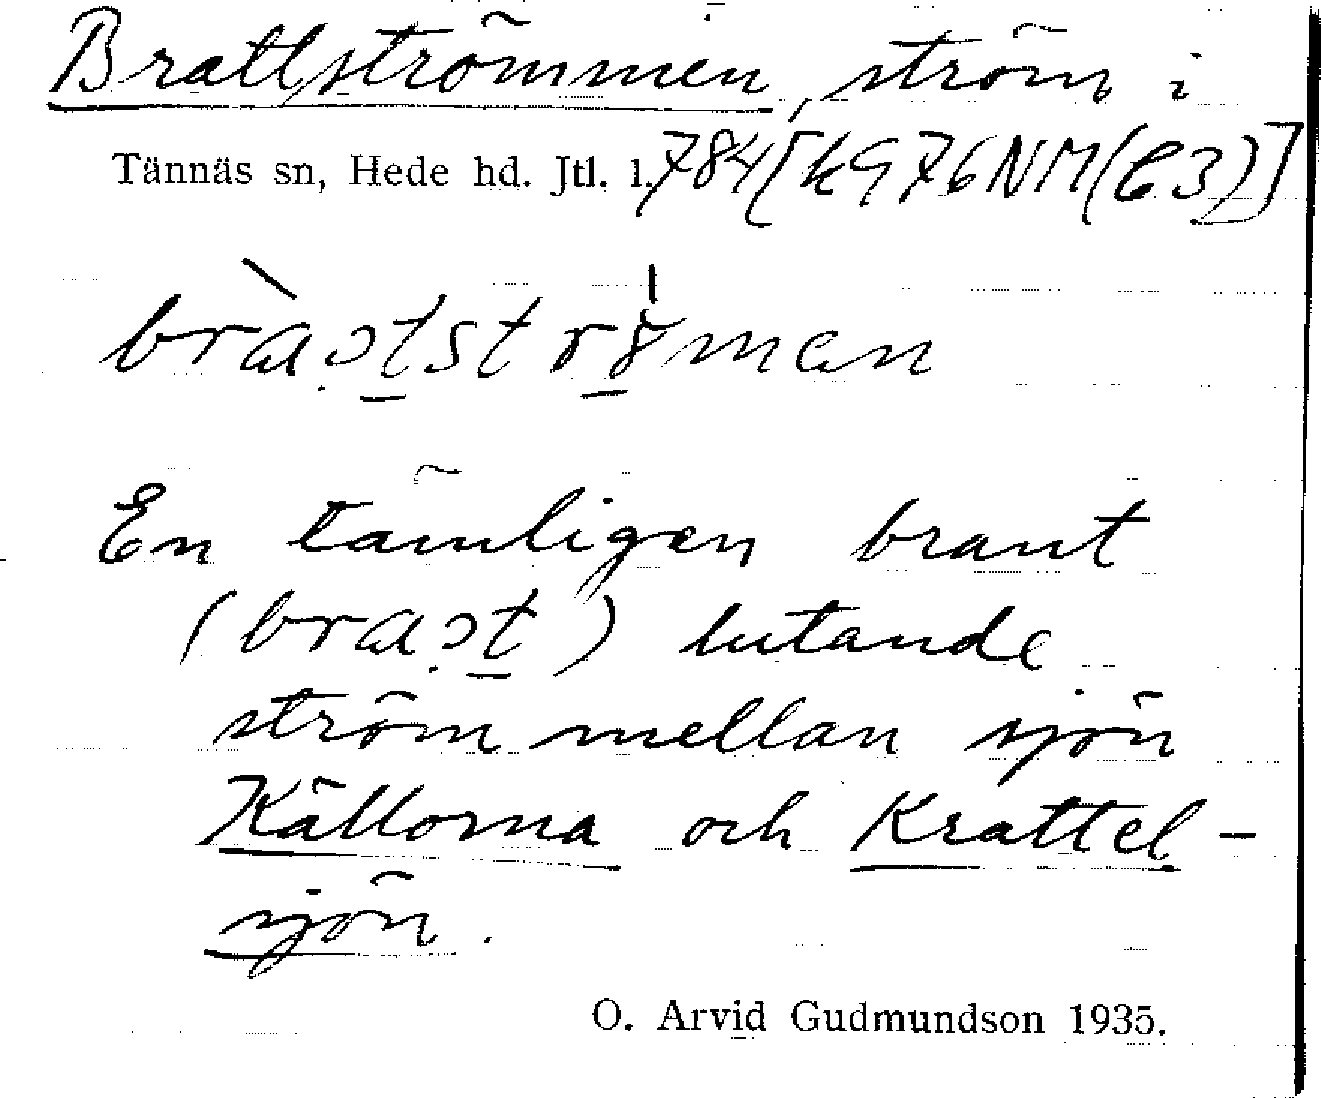 Brattströmmen, ström i
Tännäs sn, Hede hd. Jtl. l. 784[k976NM(C3)]
En tämligen brant
lutande
ström mellan sjön
Källorna och Krattel-
sjön.
O. Arvid Gudmundson 1935.